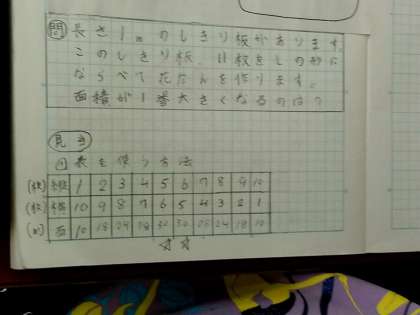 問 長さ1mのしきり板があります。
このしきり板、11枚をLの形に
ならべて花だんを作ります。
面積が1番大きくなるのは?
見方
① 表を使う方法
(枚) 縦 1 2 3 4 5 6 7 8 9 10
(枚) 横 10 9 8 7 6 5 4 3 2 1
(㎡) 面 10 18 24 28 30 30 28 24 18 10
☆ ☆